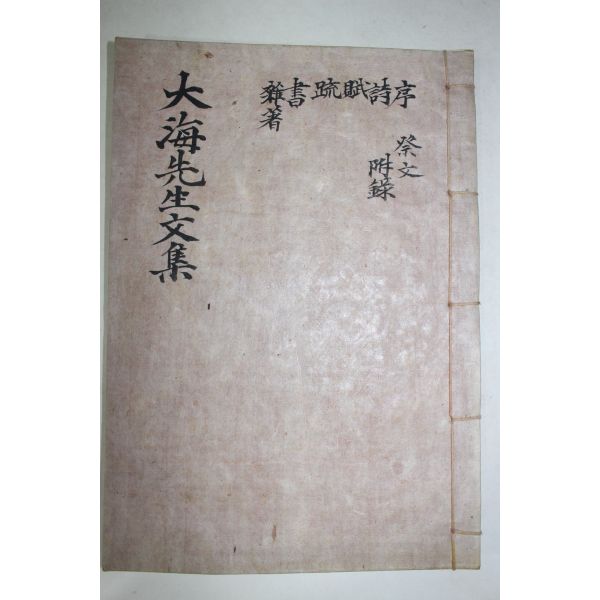 大海先生文集
序 詩 賦 疏 書 雜著
祭文
附錄